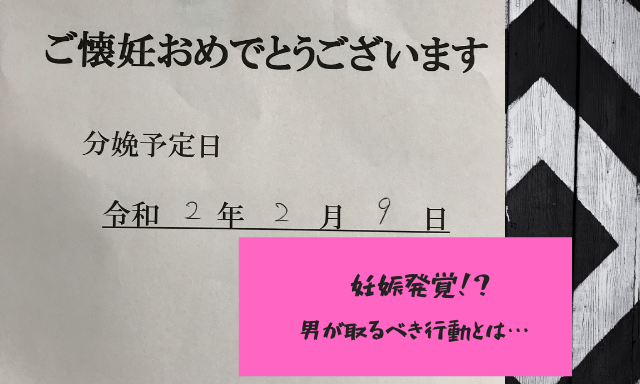 ご懐妊おめでとうございます
分娩予定日
令和 2 年 2 月 9 日
妊娠発覚!?
男が取るべき行動とは…